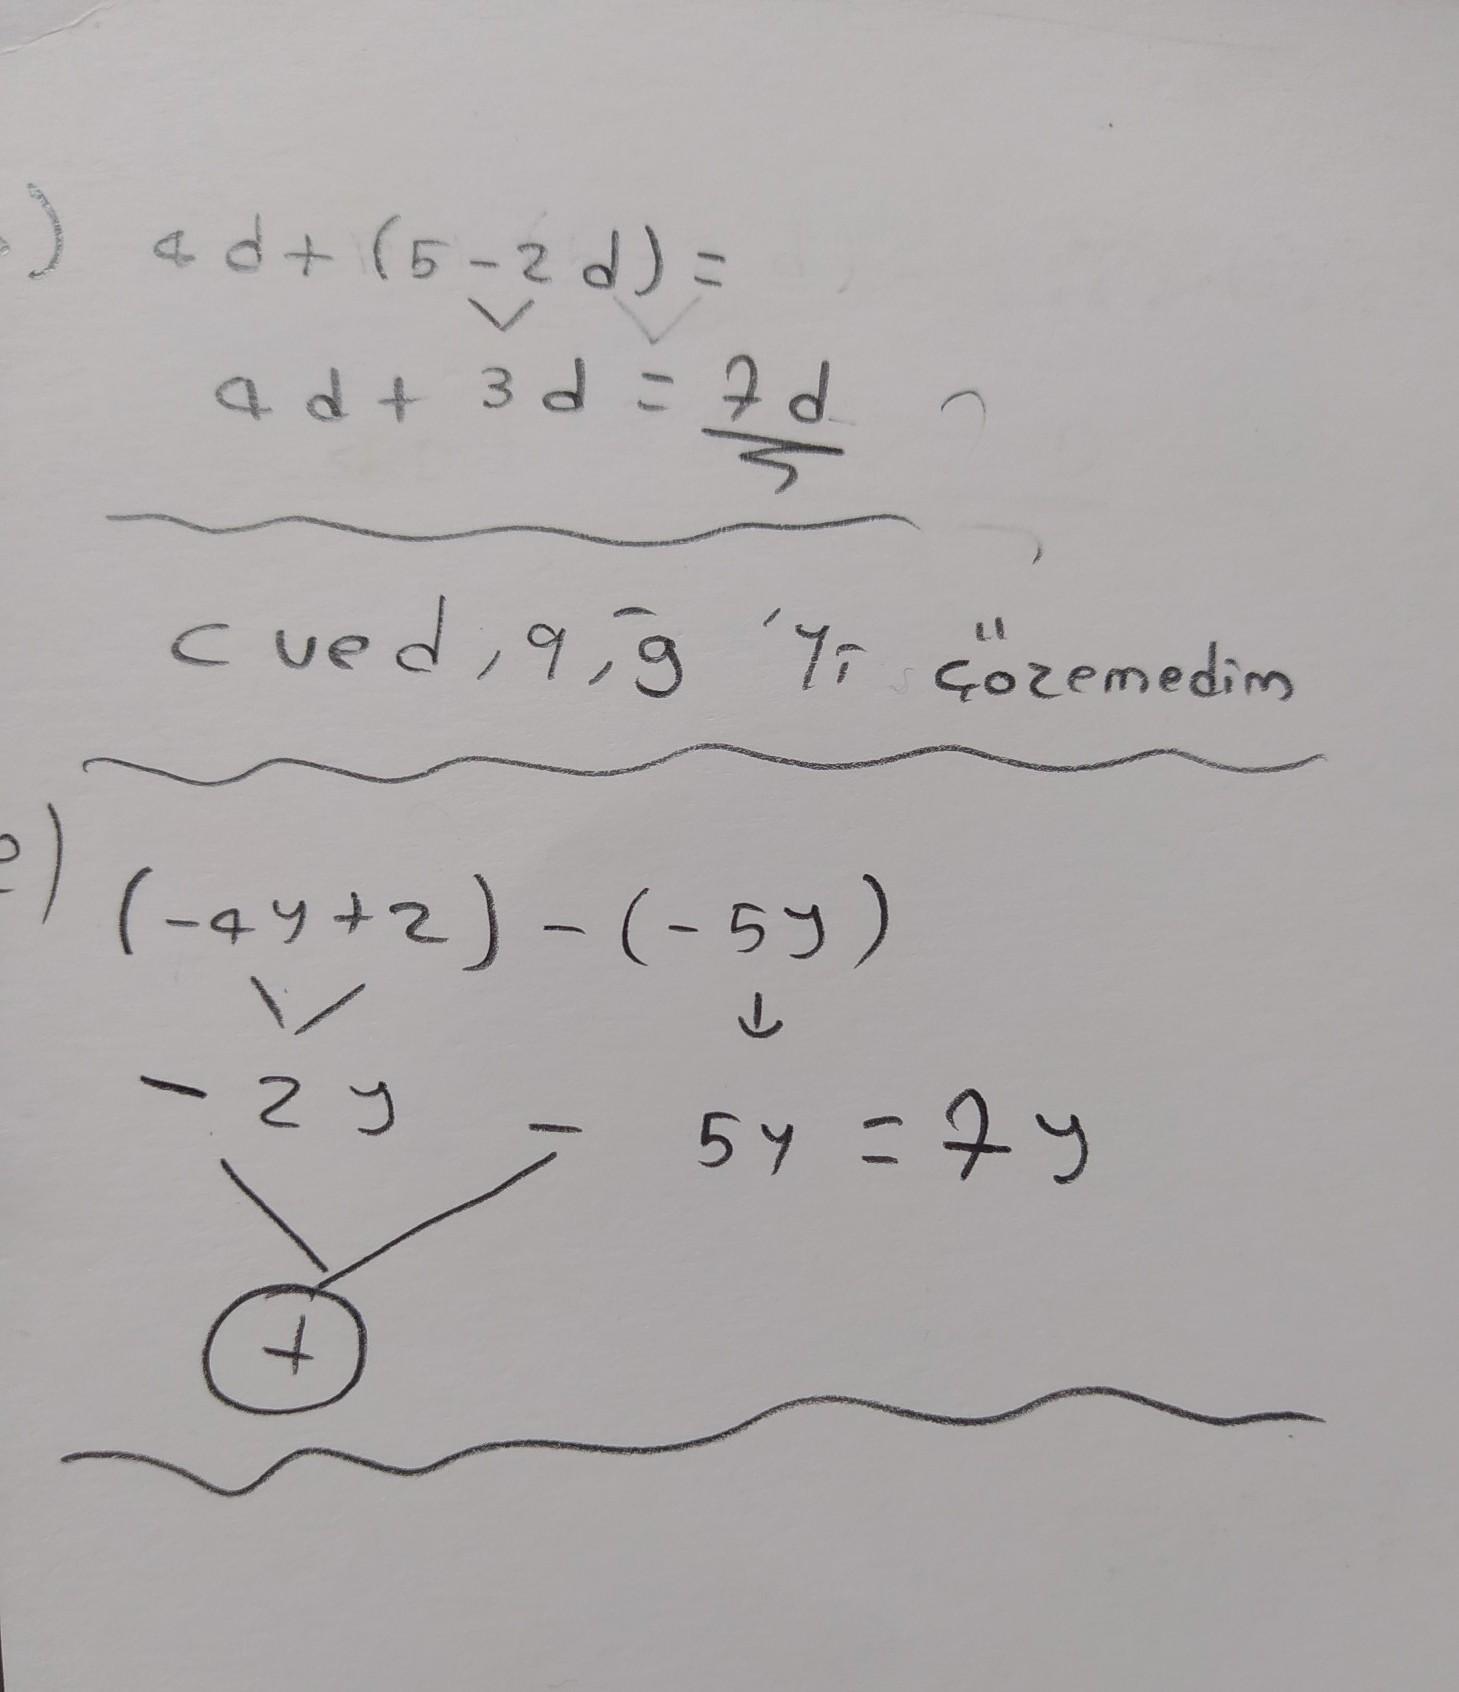 ) 4d+(5-2d)=
4d+3d=7d
c ve d, q, g 'yi çözemedim
e) (-4y+2)-(-5y)
↓
-2y - 5y = 7y
+